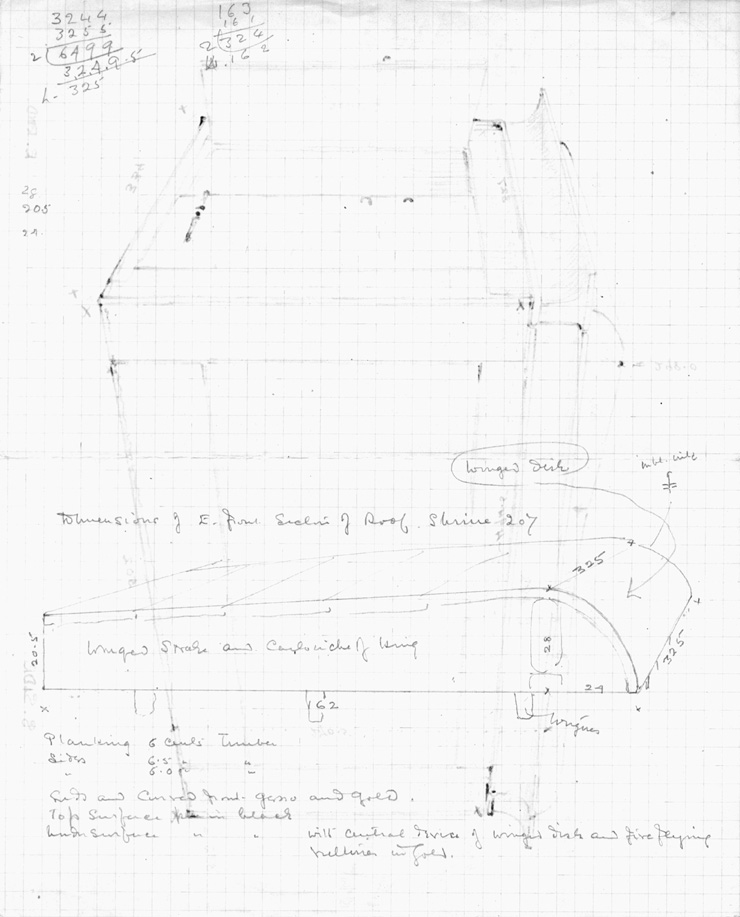 3244
3255
2 6499
3249.5
325
163
161
2 324
162
28
205
24
Winged Disk
Dimensions of E. front Section of Roof. Shrine 207
325
325
20.5
Winged Snake and Cartouche of King
28
24
162
Tongues
Planking 6 Cents Timber
Sides 6.5 " "
" 6.0 " "
Sides and Curved front gesso and gold.
Top Surface plain black
Under surface " " with central device of winged disk and five flying
vultures in gold.